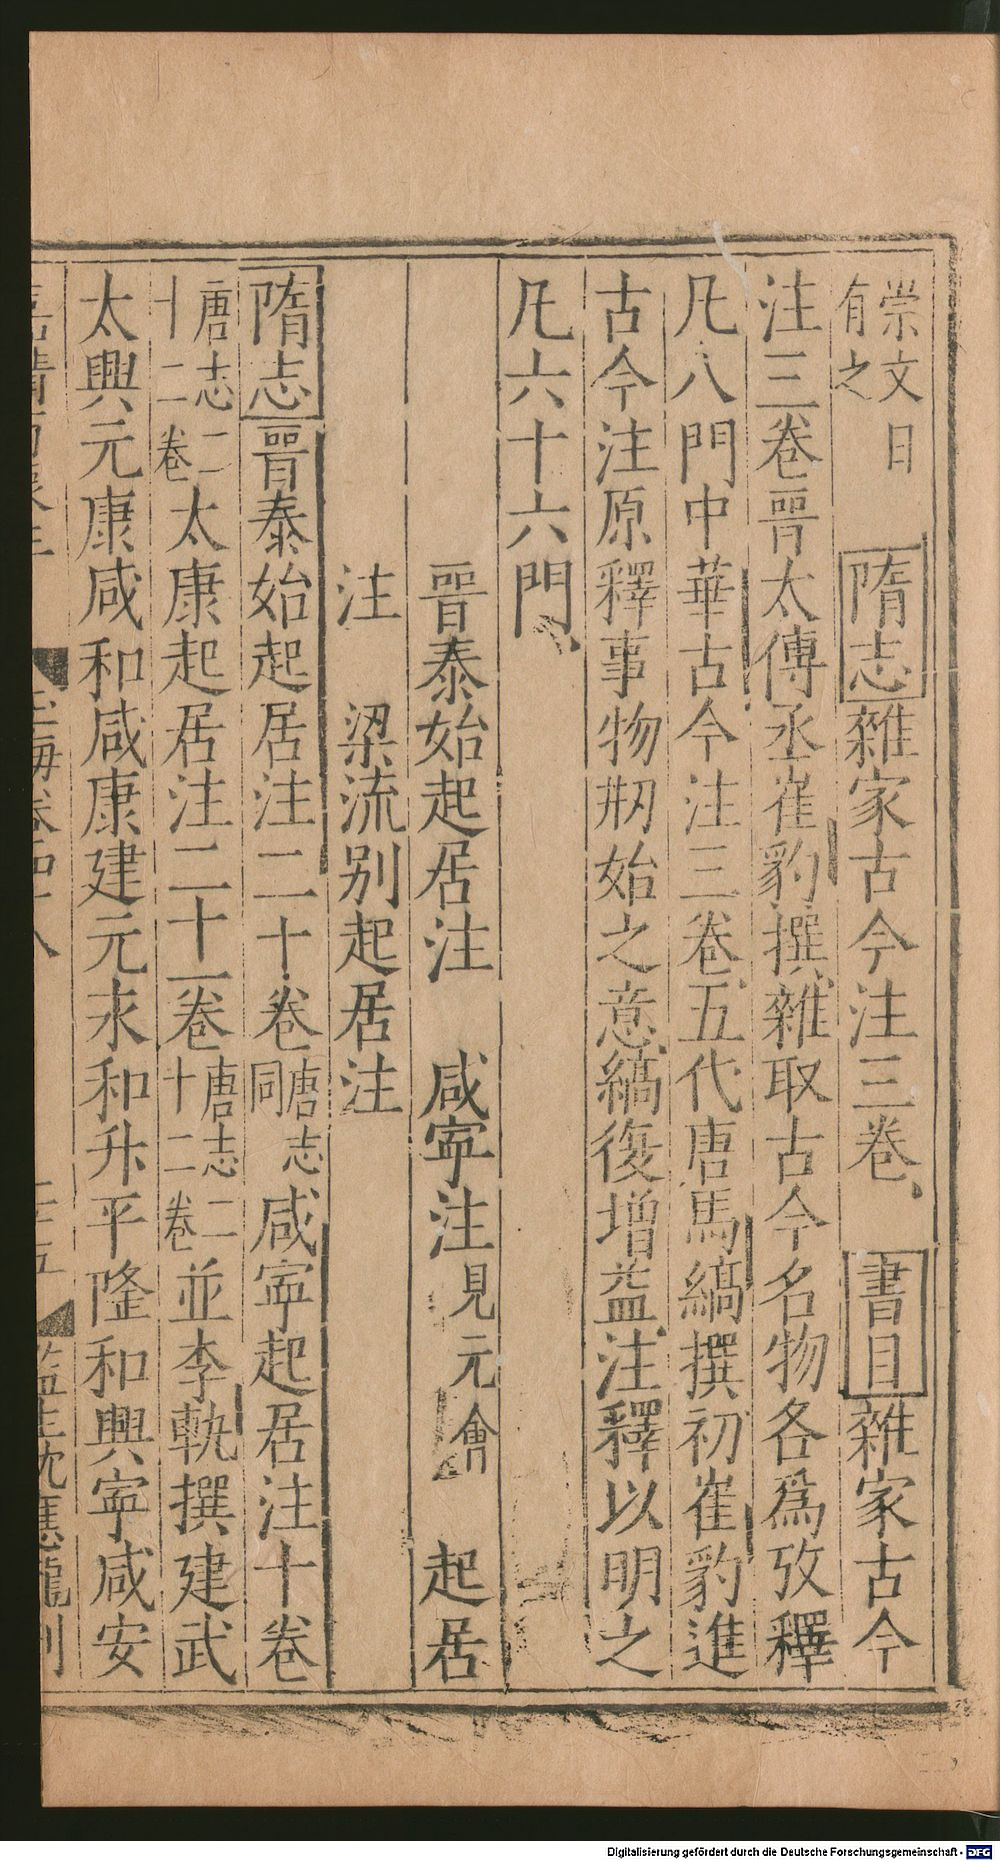 崇文目有之　隋志雜家古今注三卷　書目雜家古今
注三卷晉太傅丞崔豹撰雜取古今名物各爲攷釋
凡八門中華古今注三卷五代唐馬縞撰初崔豹進
古今注原釋事物刱始之意縞復增益注釋以明之
凡六十六門
晉泰始起居注　咸寧注見元會　起居
注　梁流别起居注
隋志晉泰始起居注二十卷唐志同咸寧起居注十卷
唐志二十二卷太康起居注二十一卷唐志二十二卷並李軌撰建武
太興元康咸和咸康建元永和升平隆和興寧咸安
Digitalisierung gefördert durch die Deutsche Forschungsgemeinschaft - DFG